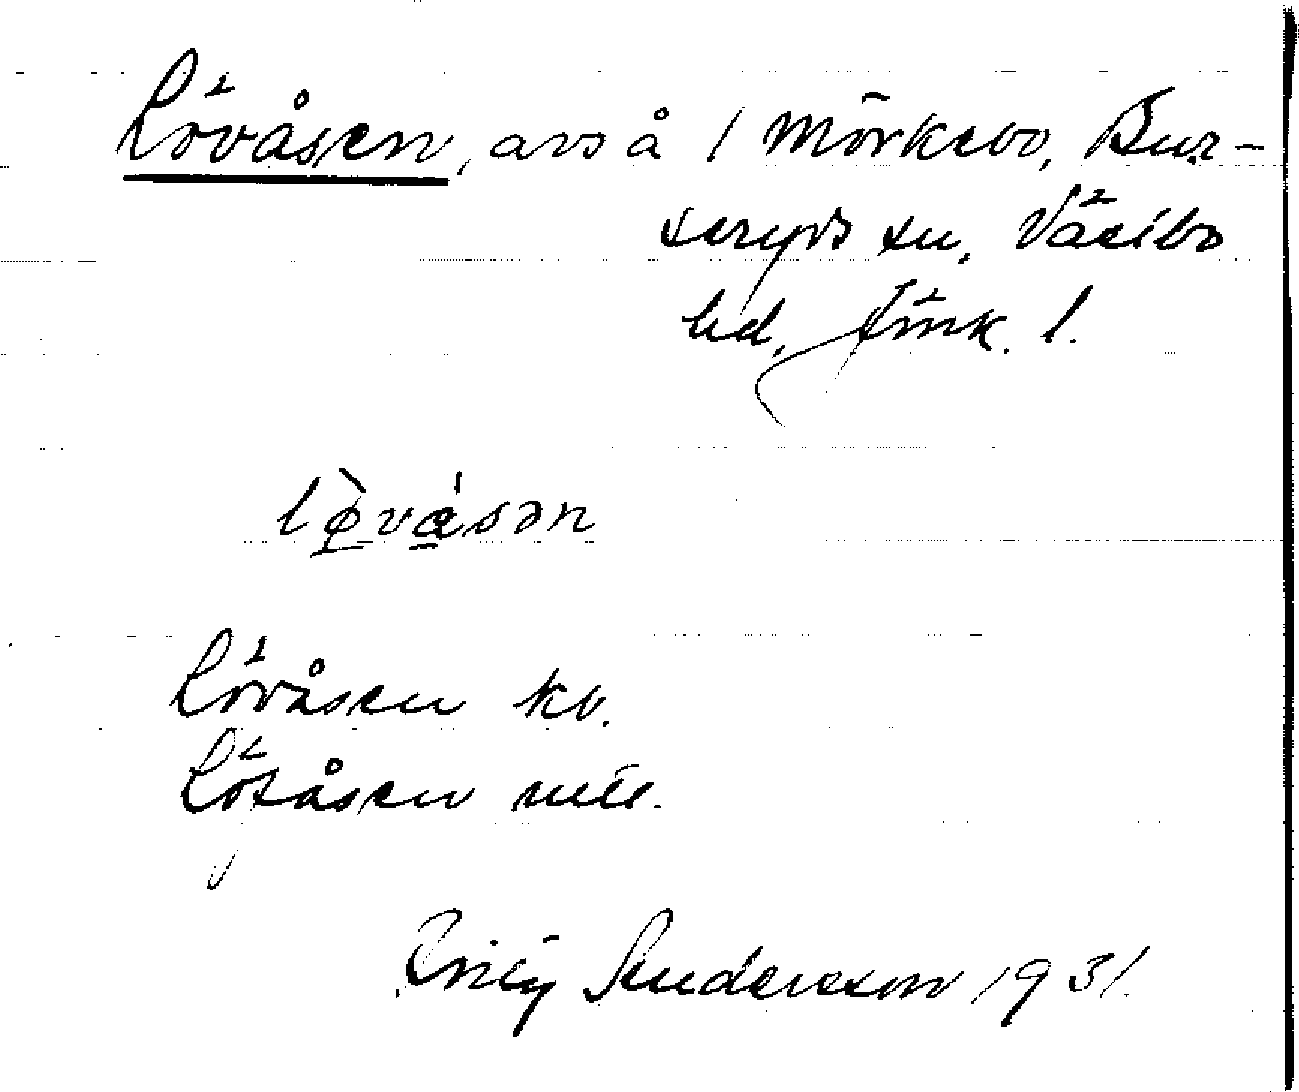 Lövåsen, avs å 1 Mörkebo, Bur-
seryds sn, Västbo
hd, Jönk. l.
lø̀våsən
Lövåsen kv.
Löfåsen utt.
Emily Andersson 1931.